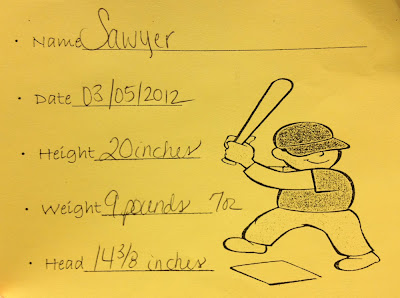 · Name Sawyer
· Date 03/05/2012
· Height 20 inches
· Weight 9 pounds 7oz
· Head 14 3/8 inches